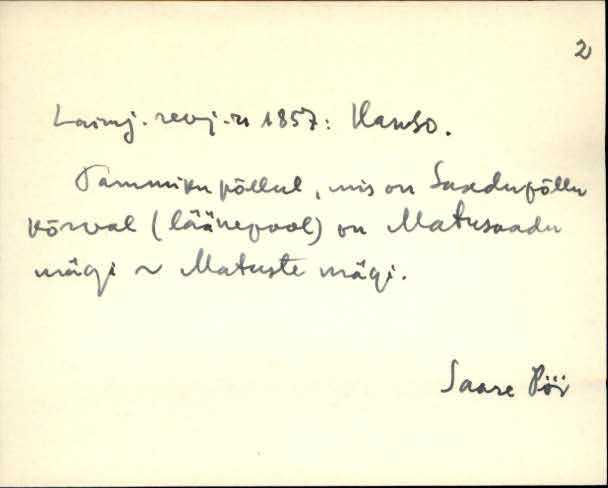 2
Laimj. revj. n 1857: Hanso.
Tammiku põllul, mis on Saadupõllu
kõrval (läänepool) on Matusaadu
mägi ~ Matuste mägi.
Saare Pöi